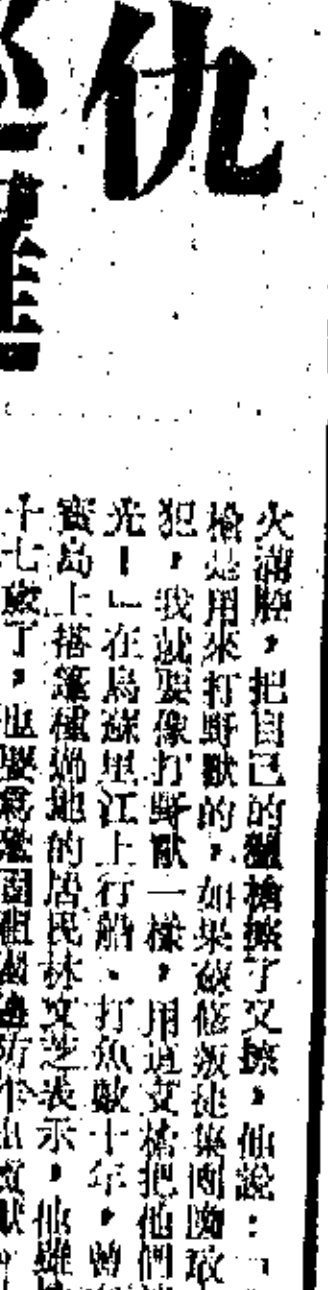 仇
火滿腔，把自己的獵槍擦了又擦，他說：「
槍是用來打野獸的，如果蘇修叛徒集團膽敢
犯，我就要像打野獸一樣，用這支槍把他們
光！」在烏蘇里江上行船、打魚數十年，曾
寶島上搭篷種過地的居民林文芝表示，他雖
十七歲了，也要爲祖國邊防作出貢獻